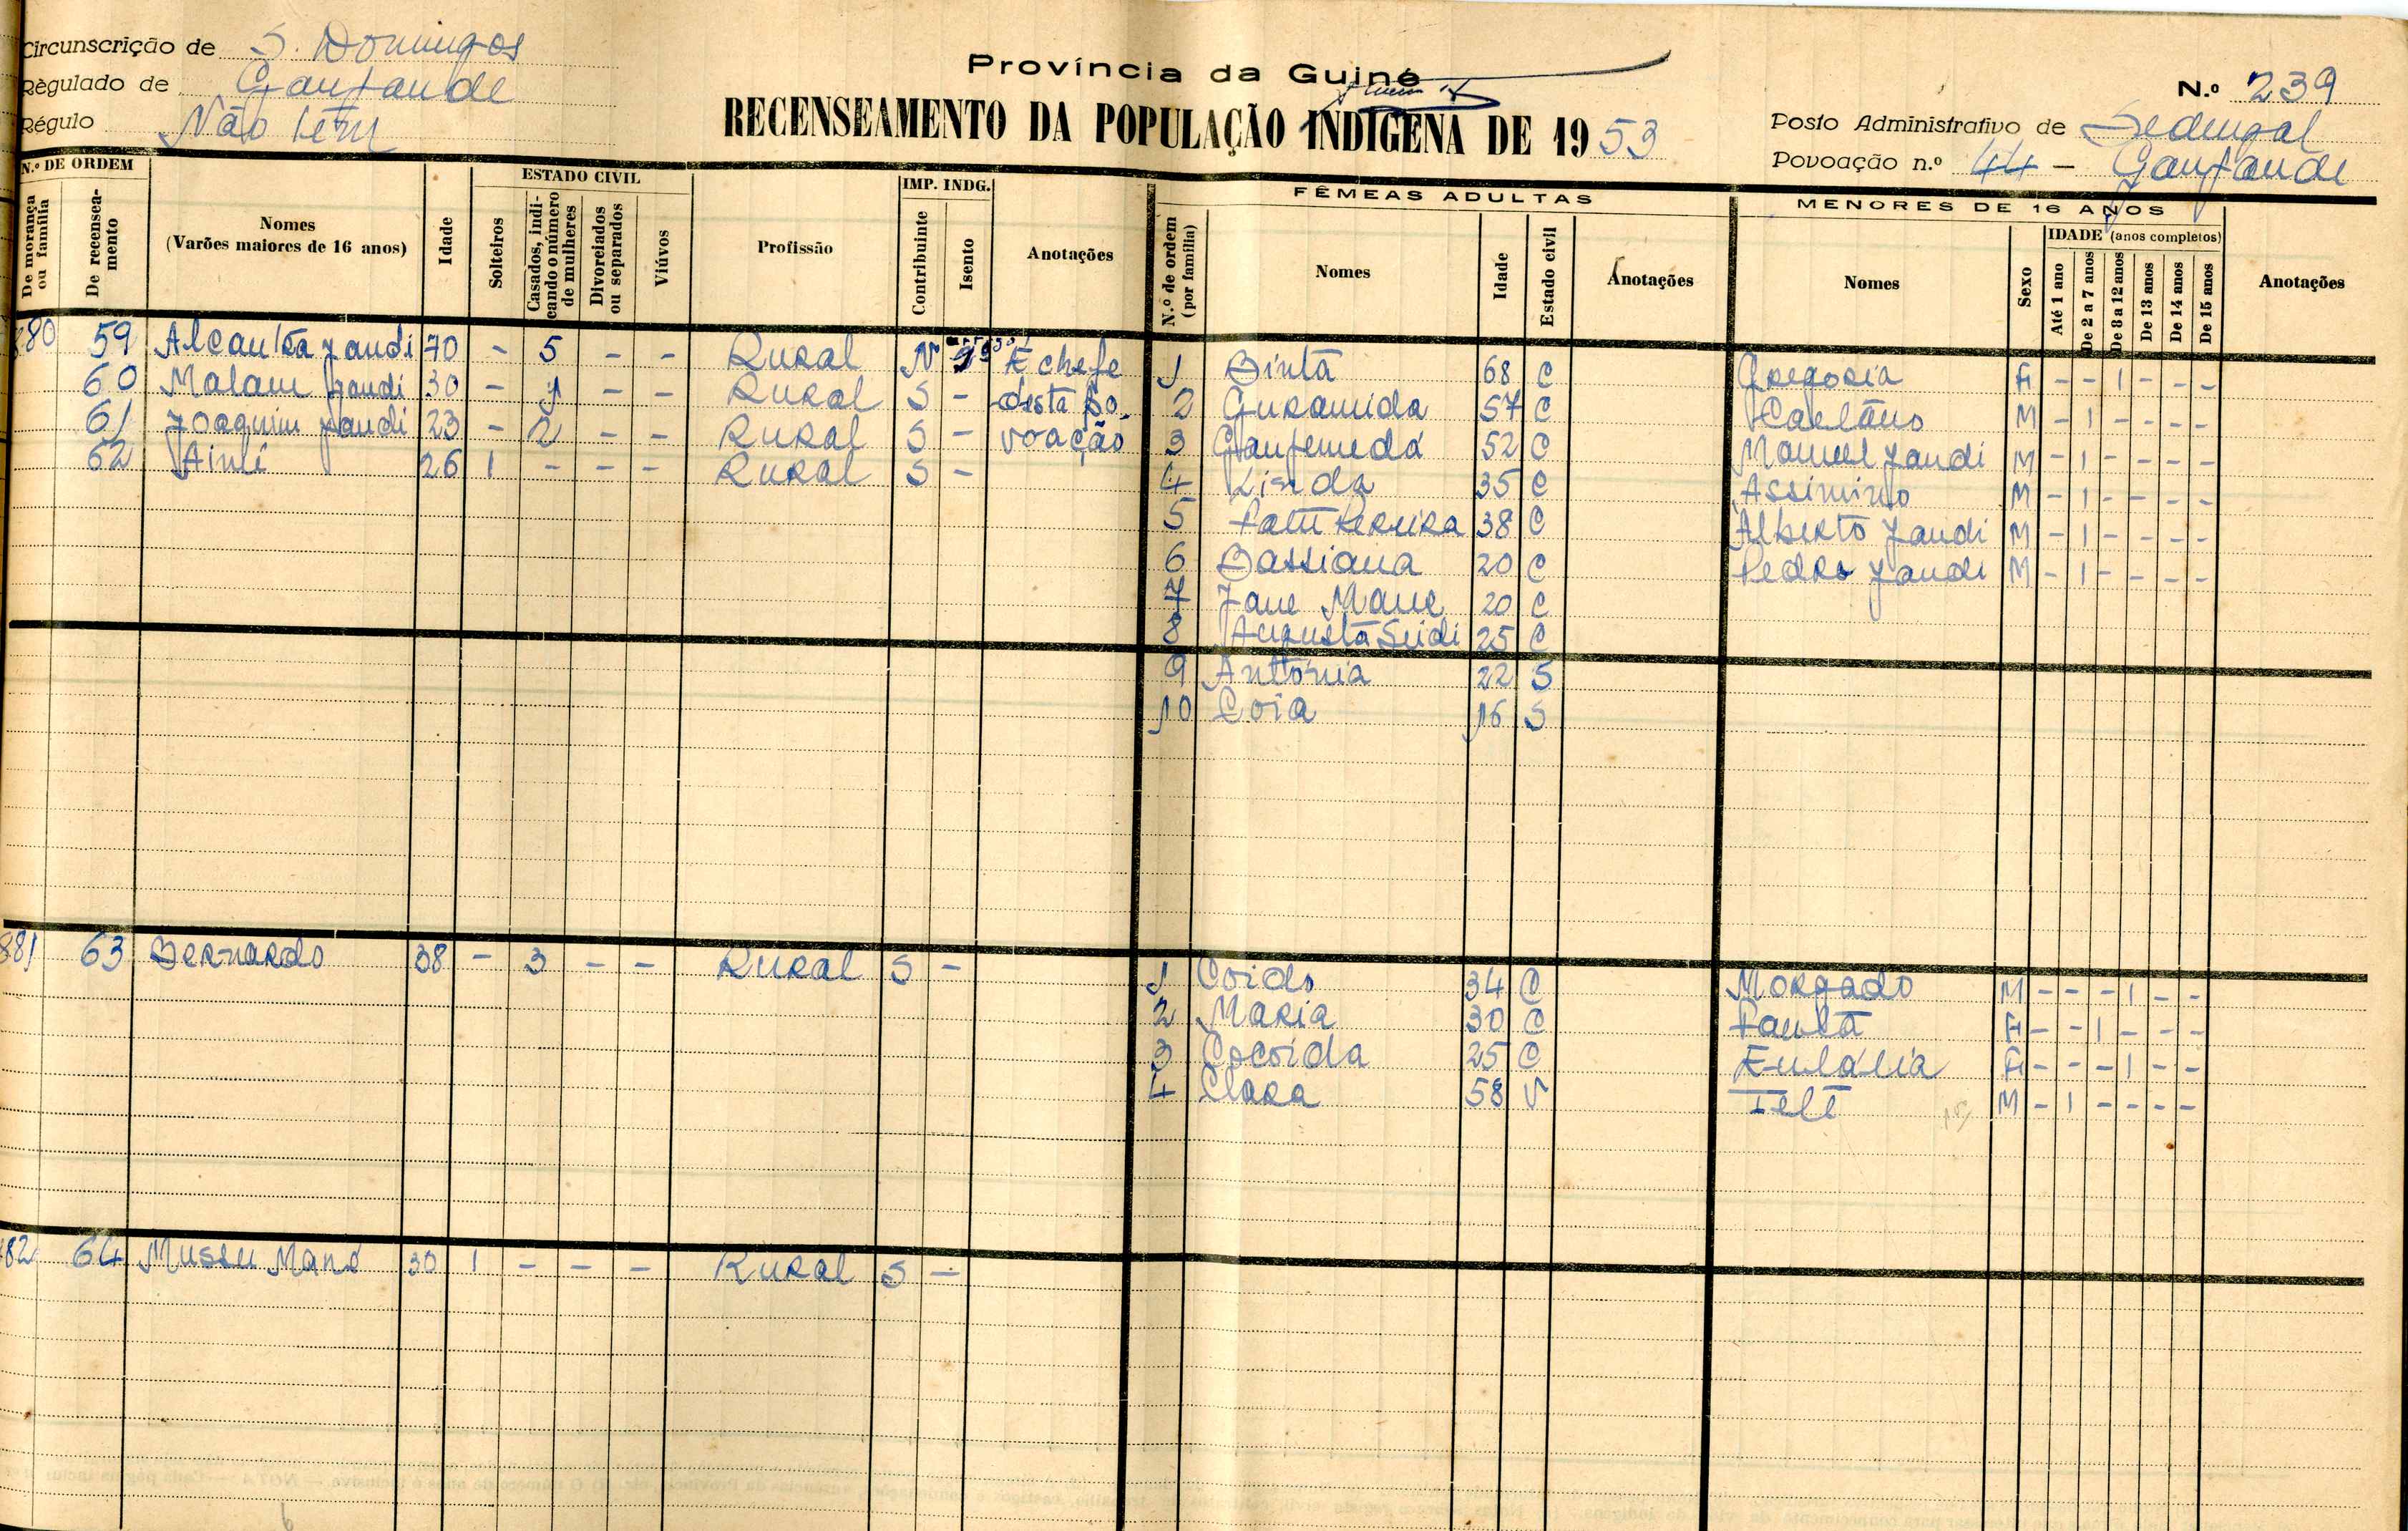 Circunscrição de S. Domingos
Régulado de Ganjande
Régulo Não tem
Província da Guiné
RECENSEAMENTO DA POPULAÇÃO INDÍGENA DE 1953
N.º 239
Posto Administrativo de Sedengal
Povoação n.º 44 - Ganjande
N.º DE ORDEM
De morança ou família
De recenseamento
Nomes
(Varões maiores de 16 anos)
Idade
ESTADO CIVIL
Solteiros
Casados, indicando o número de mulheres
Divorciados ou separados
Viúvos
Profissão
IMP. INDG.
Contribuinte
Isento
Anotações
FÊMEAS ADULTAS
N.º de ordem (por família)
Nomes
Idade
Estado civil
Anotações
MENORES DE 16 ANOS
Nomes
Sexo
IDADE (anos completos)
Até 1 ano
De 2 a 7 anos
De 8 a 12 anos
De 13 anos
De 14 anos
De 15 anos
Anotações
880 59 Alcantra Jandi 70 - 5 - - Rural N É chefe
60 Malam Jandi 30 - 1 - - Rural S - desta Po-
61 Joaquim Jandi 23 - 2 - - Rural S - voação
62 26 1 - - - Rural S -
1 Binta 68 C
2 Guramida 57 C
3 Ganjemeda 52 C
4 Linda 35 C
5 Fatú Pereira 38 C
6 Bassiana 20 C
7 Jane Mane 20 C
8 Augusta Seidi 25 C
9 Antónia 22 S
10 Coia 16 S
Gregoria F - - 1 - - -
Caetano M - 1 - - - -
Manuel Jandi M - 1 - - - -
Assimino M - 1 - - - -
Alberto Jandi M - 1 - - - -
Pedro Jandi M - 1 - - - -
881 63 Bernardo 38 - 3 - - Rural S -
1 Coido 34 C
2 Maria 30 C
3 Cocoida 25 C
4 Clara 58 V
Morgado M - - - 1 - -
Paula F - - 1 - - -
Eulália F - - - 1 - -
M - 1 - - - -
882 64 Mussu Mané 30 1 - - - Rural S -